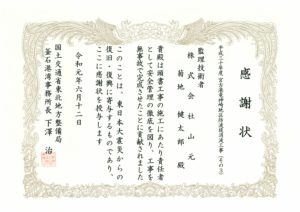 感謝状
平成三十年度 宮古港竜神崎地区防波堤消波工事(その3)
監理技術者
株式会社山元
菊地健太郎殿
貴殿は頭書工事の施工にあたり責任者
として安全管理の徹底を図り、工事を
無事故で完成させたことに貢献されました
このことは、東日本大震災からの
復旧・復興に寄与するものであり、
ここに感謝状を授与します
令和元年六月十二日
国土交通省東北地方整備局
釜石港湾事務所長 下澤治